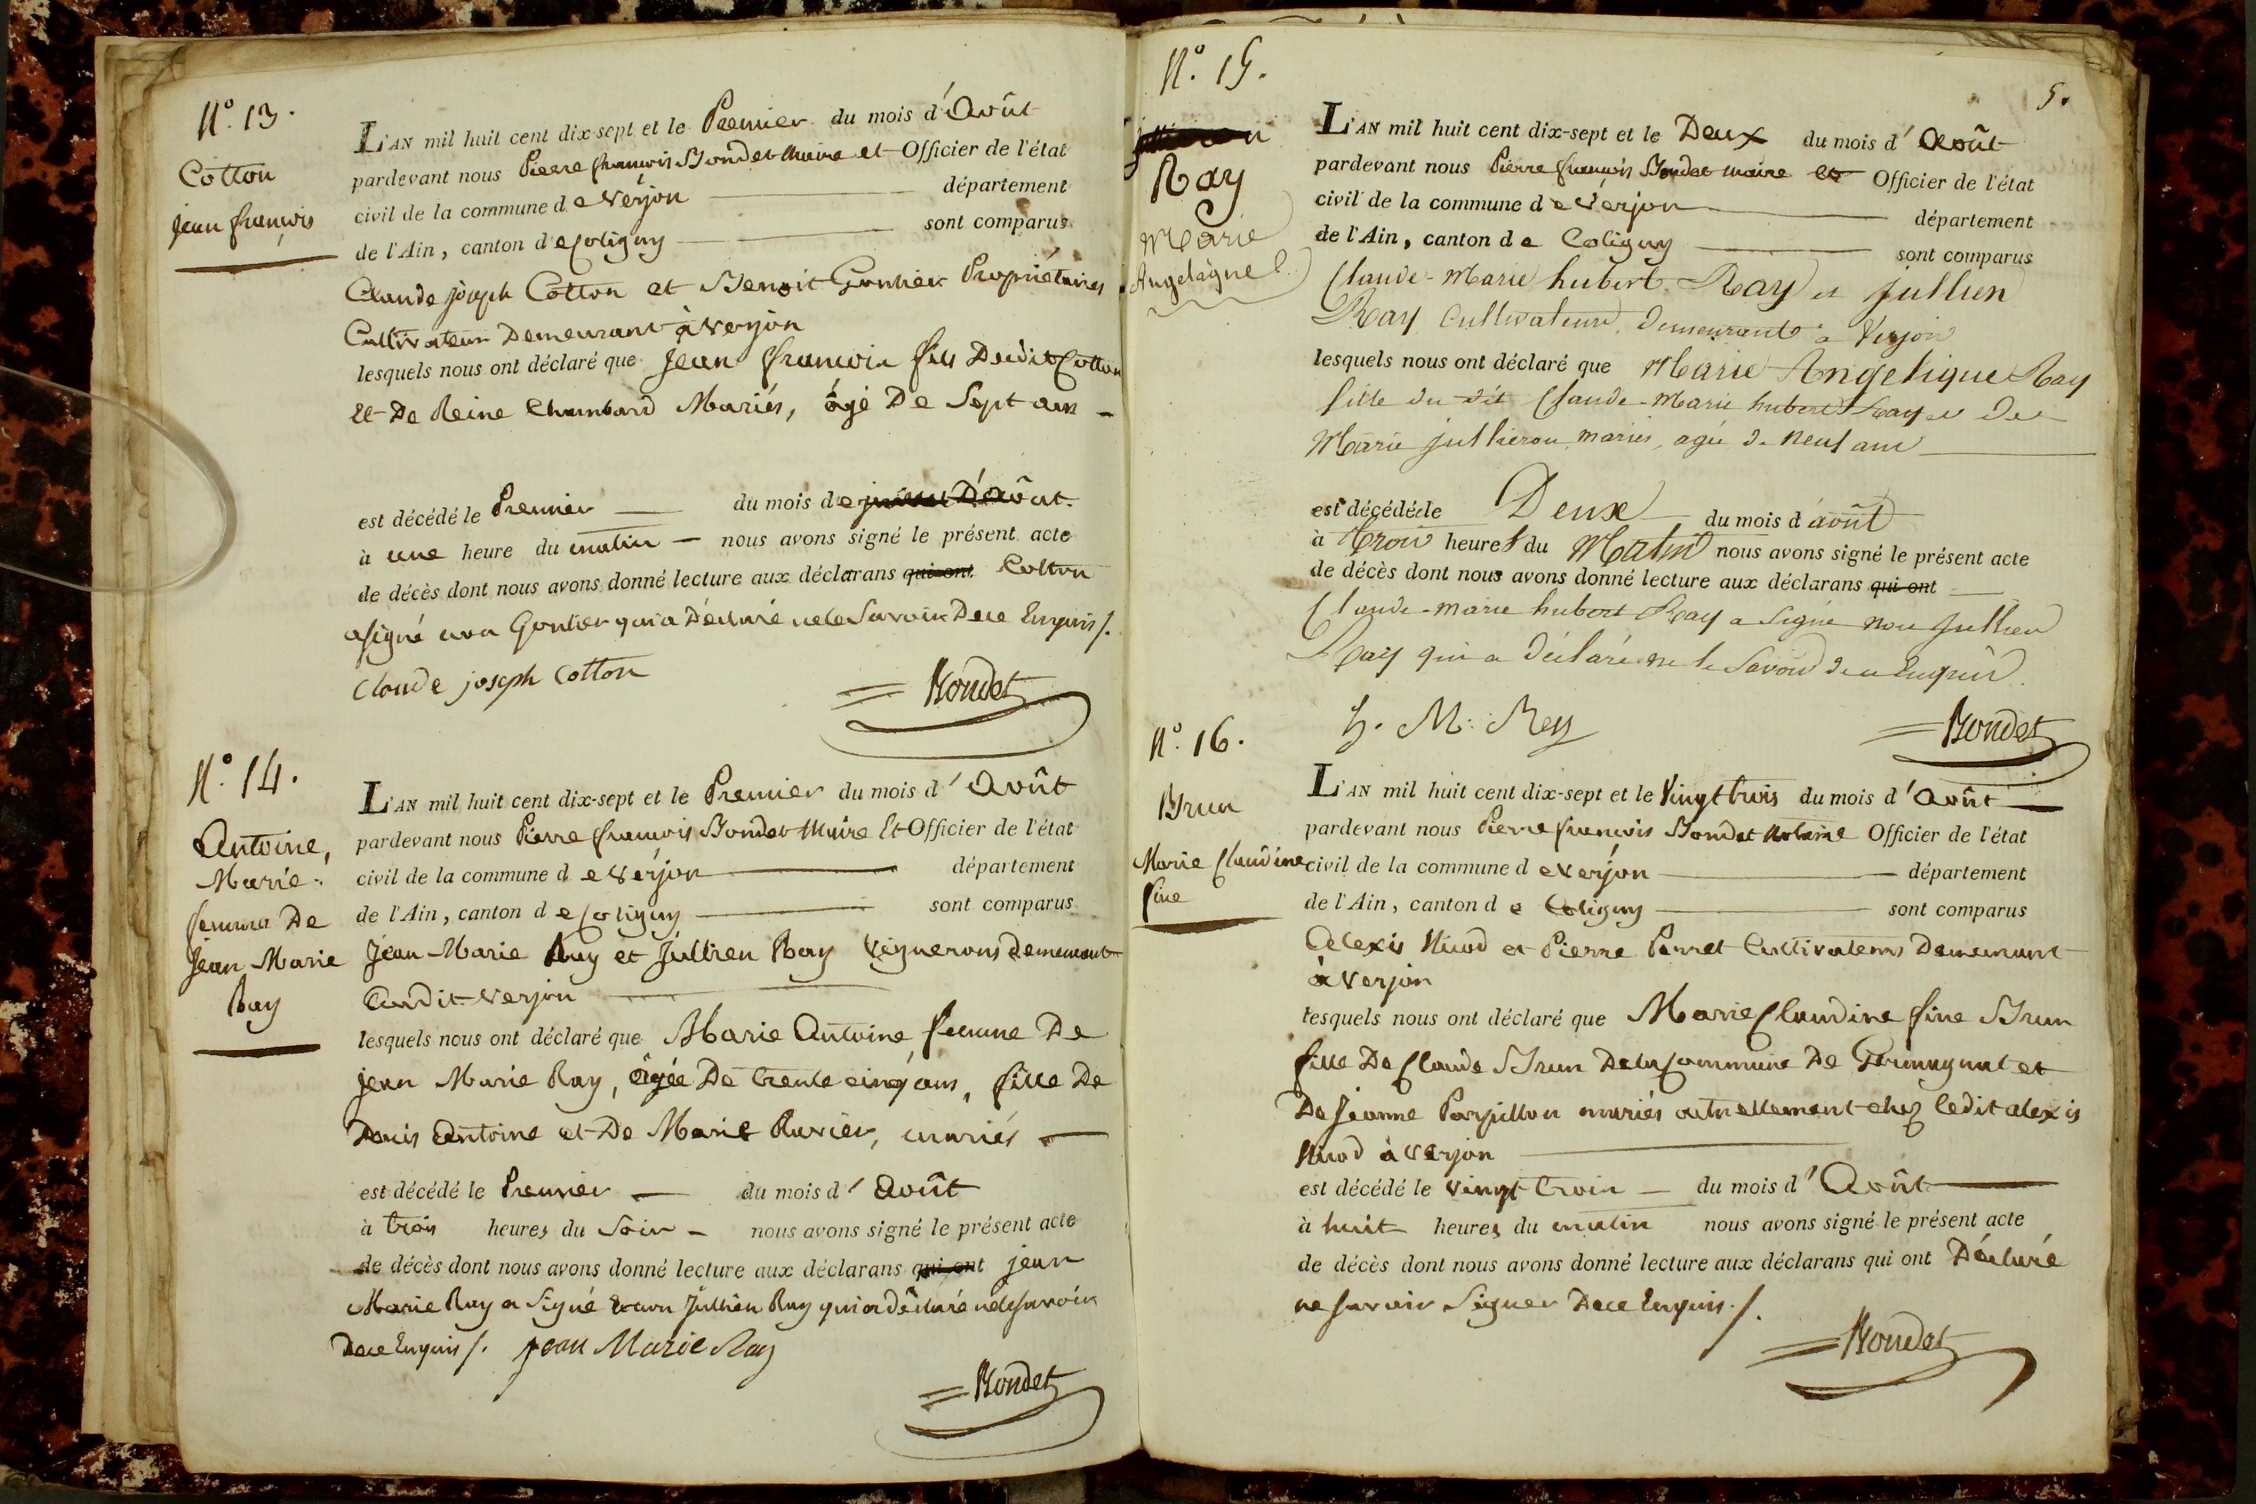 N.° 13.
Cotton
jean françois
L'AN mil huit cent dix-sept et le Premier du mois d'Août
pardevant nous Pierre françois Bondet Maire et Officier de l'état
civil de la commune de verjon département
de l'Ain, canton de Coligny sont comparus
Claude joseph Cotton et Benoit Gontier Propriétaires
Cultivateurs Demeurant à verjon
lesquels nous ont déclaré que Jean françois fils Dudit Cotton
et De Reine Chambard Mariés, âgé De Sept ans
est décédé le Premier du mois de juillet D'Août
à une heure du matin nous avons signé le présent acte
de décès dont nous avons donné lecture aux déclarans qui ont Cotton
a signé non Gontier qui a Déclaré ne le Savoir De ce Enquis /.
Claude joseph Cotton
Bondet
N.° 14.
Antoine,
Marie
femme De
Jean Marie
Ray
L'AN mil huit cent dix-sept et le Premier du mois d'Août
pardevant nous Pierre françois Bondet Maire Et Officier de l'état
civil de la commune de verjon département
de l'Ain, canton de Coligny sont comparus
Jean Marie Ray et Jullien Ray Vignerons demeurant
Audit verjon
lesquels nous ont déclaré que Marie Antoine femme De
jean Marie Ray, âgée De trente cinq ans, fille De
Denis Antoine et De Marie Ravier, mariés
est décédé le Premier du mois d'Août
à trois heures du Soir nous avons signé le présent acte
de décès dont nous avons donné lecture aux déclarans qui ont jean
Marie Ray a Signé et non Jullien Ray qui a déclaré ne le Savoir
De ce Enquis /. jean Marie Ray
Bondet
5.
N.° 15.
Ray
Marie
Angelique
L'AN mil huit cent dix-sept et le Deux du mois d'Août
pardevant nous Pierre françois Bondet maire et Officier de l'état
civil de la commune de verjon département
de l'Ain, canton de Coligny sont comparus
Claude-Marie hubert Ray et Jullien
Ray Cultivateurs, demeurants à Verjon
lesquels nous ont déclaré que Marie Angelique Ray
fille du dit Claude-Marie hubert Ray et de
Marie jullieron mariés, agée de neuf ans
est décédée le Deux du mois d'août
à Trois heures du Matin nous avons signé le présent acte
de décès dont nous avons donné lecture aux déclarans qui ont
Claude-marie hubert Ray a signé non Jullien
Ray qui a déclaré ne le Savoir de ce Enquis.
h. M. Rey
Bondet
N.° 16.
Brun
Marie Claudine
fine
L'AN mil huit cent dix-sept et le Vingt trois du mois d'Août
pardevant nous Pierre françois Bondet Maire Officier de l'état
civil de la commune de verjon département
de l'Ain, canton de Coligny sont comparus
Alexis Nicod et Pierre Perret Cultivateurs Demeurant
à Verjon
lesquels nous ont déclaré que Marie Claudine fine Brun
fille De Claude Brun De la Commune De et
De Jeanne Parpillon mariés actuellement chez ledit alexis
Nicod à Verjon
est décédé le vingt trois du mois d'Août
à huit heures du matin nous avons signé le présent acte
de décès dont nous avons donné lecture aux déclarans qui ont Déclaré
ne Savoir Signer De ce Enquis. /.
Bondet